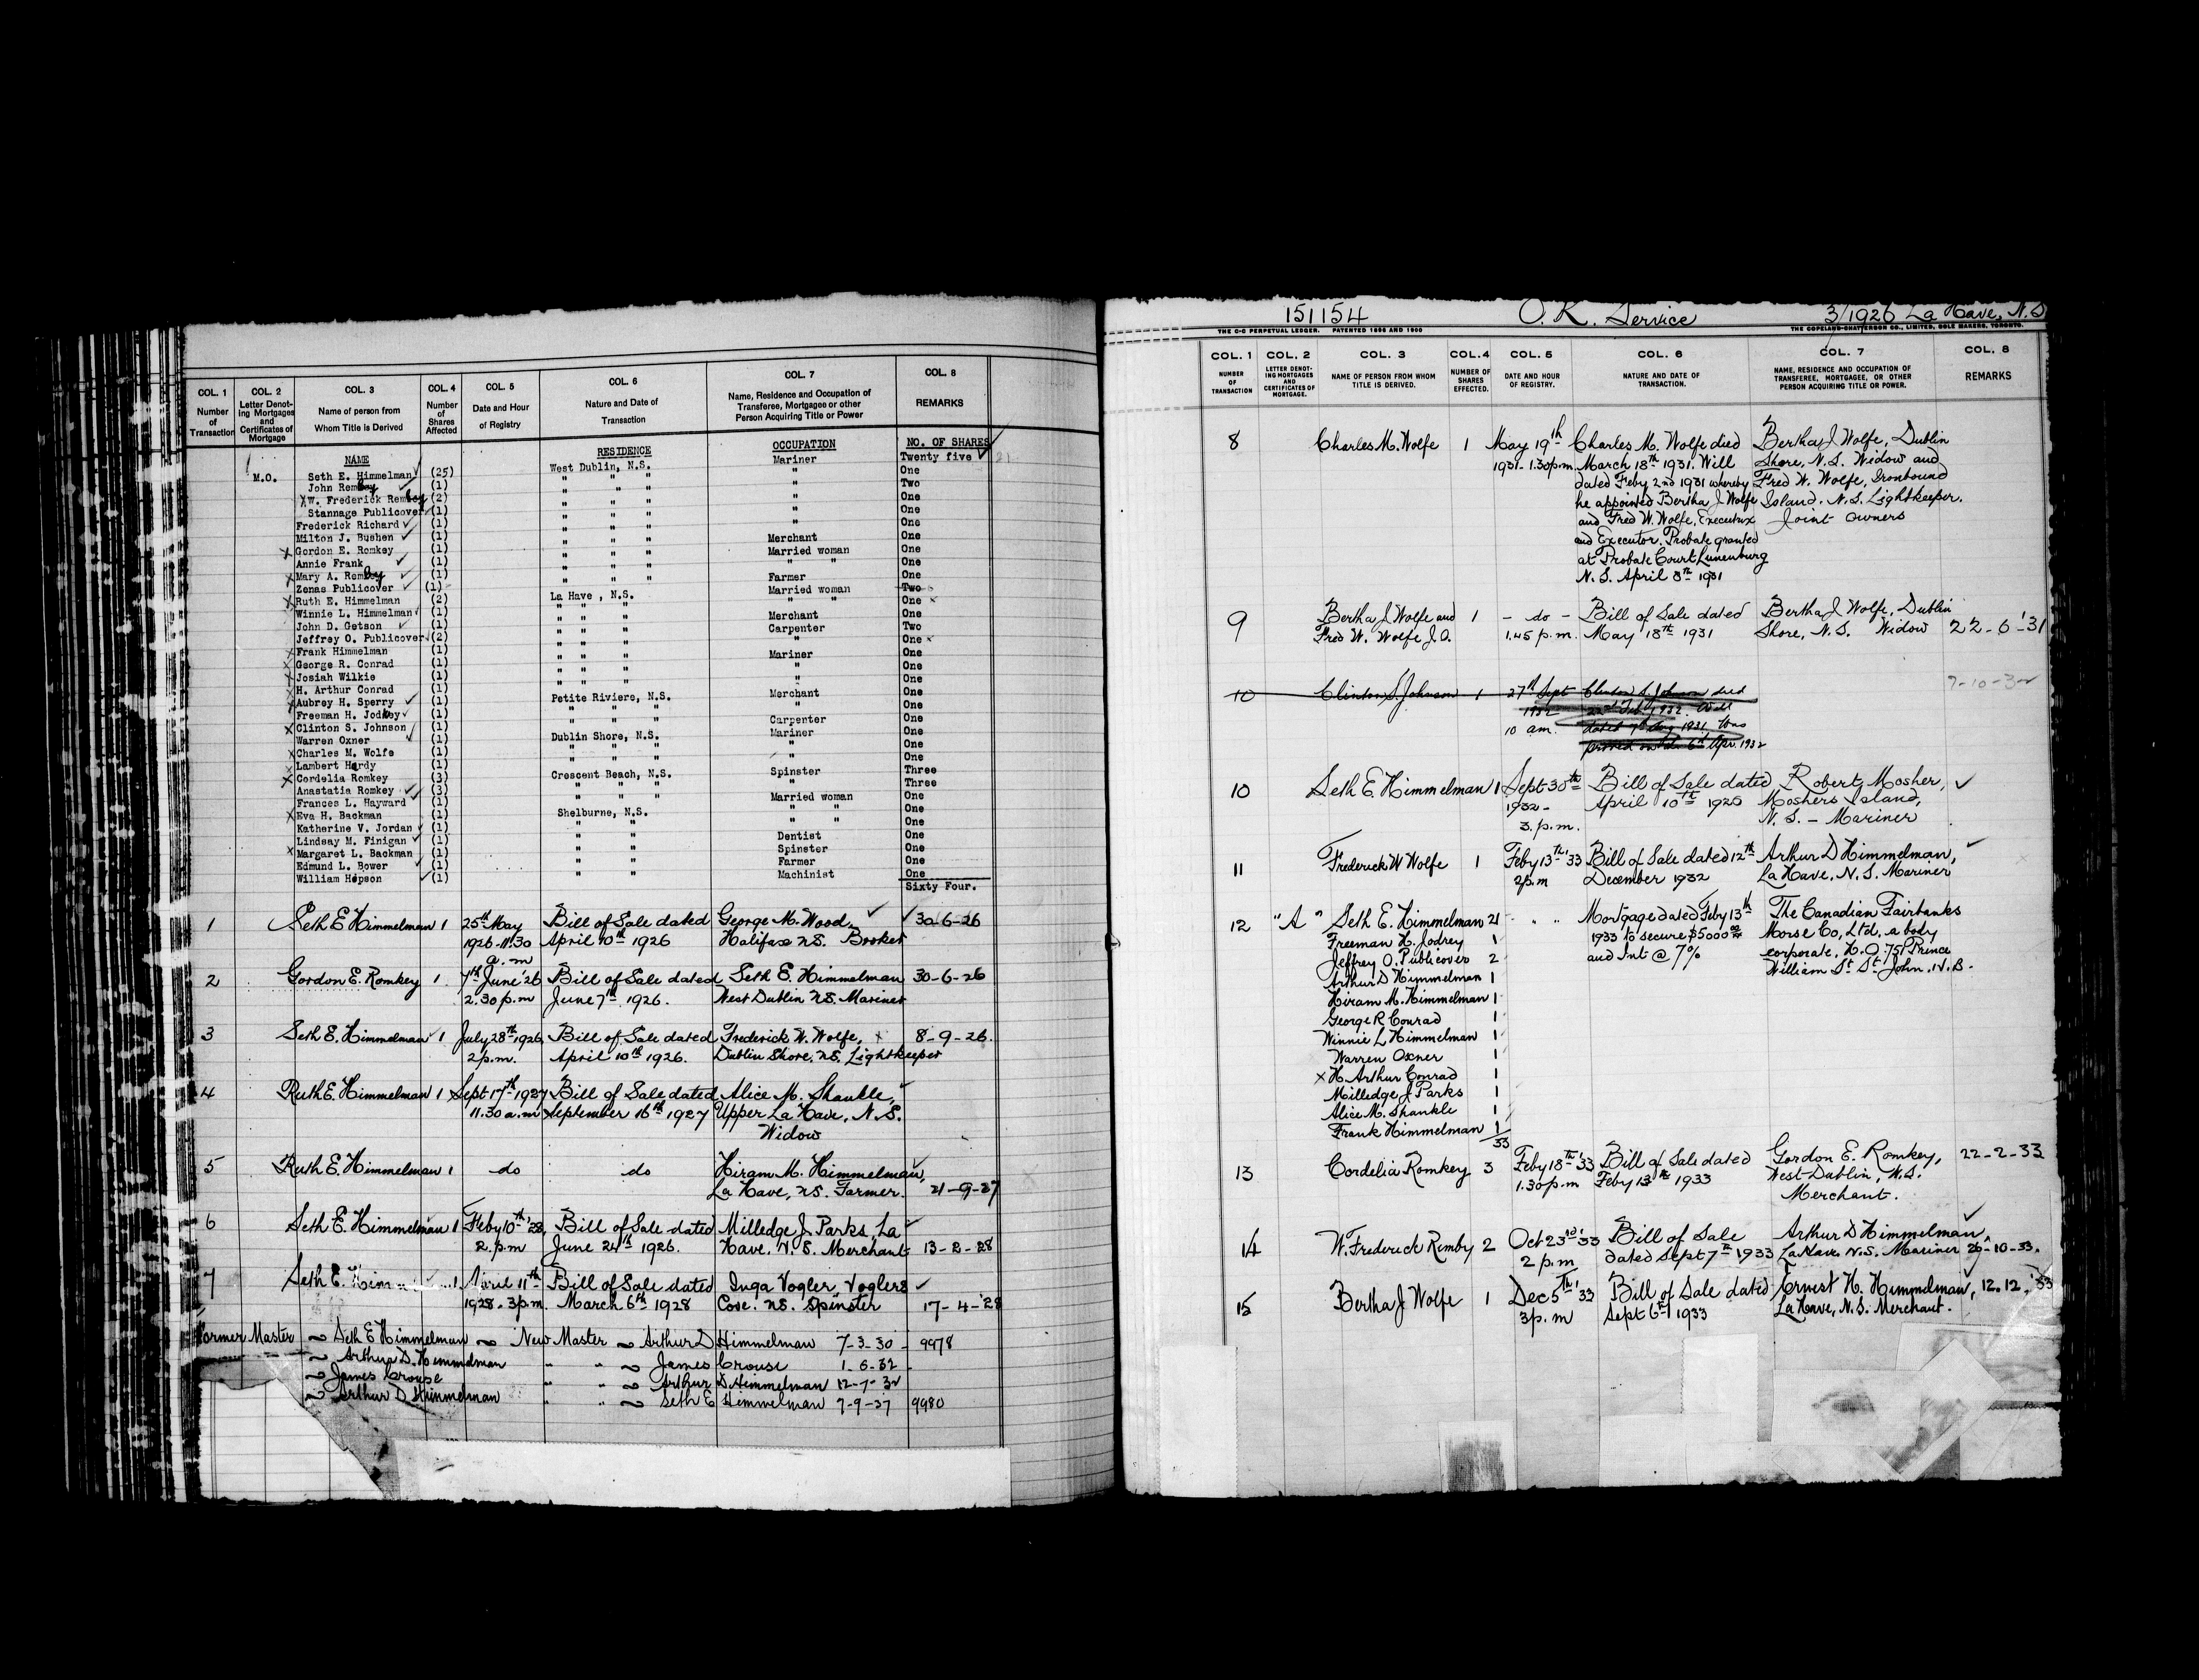 COL. 1 COL. 2 COL. 3 COL. 4 COL. 5 COL. 6 COL. 7 COL. 8
Number of Transaction
Letter Denoting Mortgages and Certificates of Mortgage
Name of person from Whom Title is Derived
Number of Shares Affected
Date and Hour of Registry
Nature and Date of Transaction
Name, Residence and Occupation of Transferee, Mortgagee or other Person Acquiring Title or Power
REMARKS
NAME RESIDENCE OCCUPATION NO. OF SHARES
M.O. Seth E. Himmelman (25) West Dublin, N.S. Mariner Twenty five 21
John Romkey (1) " " " " One
W. Frederick Romkey (2) " " " " Two
Stannage Publicover (1) " " " " One
Frederick Richard (1) " " " " One
Milton J. Bushen (1) " " " " One
Gordon E. Romkey (1) " " " Merchant One
Annie Frank (1) " " " Married woman One
Mary A. Romkey (1) " " " " " One
Zenas Publicover (1) " " " Farmer One
Ruth E. Himmelman (2) La Have , N.S. Married woman Two
Winnie L. Himmelman (1) " " " " " One
John D. Getson (1) " " " Merchant One
Jeffrey O. Publicover (2) " " " Carpenter Two
Frank Himmelman (1) " " " " One
George R. Conrad (1) " " " Mariner One
Josiah Wilkie (1) " " " " One
H. Arthur Conrad (1) " " " " One
Aubrey H. Sperry (1) Petite Riviere, N.S. Merchant One
Freeman H. Jodrey (1) " " " " One
Clinton S. Johnson (1) " " " Carpenter One
Warren Oxner (1) Dublin Shore, N.S. Mariner One
Charles M. Wolfe (1) " " " " One
Lambert Hardy (1) " " " " One
Cordelia Romkey (3) Crescent Beach, N.S. Spinster Three
Anastatia Romkey (3) " " " " Three
Frances L. Hayward (1) " " " Married woman One
Eva H. Backman (1) Shelburne, N.S. " " One
Katherine V. Jordan (1) " " " " One
Lindsay M. Finigan (1) " " Dentist One
Margaret L. Backman (1) " " Spinster One
Edmund L. Bower (1) " " Farmer One
William Hopson (1) " " Machinist One
Sixty Four.
1 Seth E Himmelman 1 25th May Bill of Sale dated George M. Wood, 30-6-26
1926-11.30 April 10th 1926 Halifax N.S. Broker
a.m
2 Gordon E. Romkey 1 7th June '26 Bill of Sale dated Seth E. Himmelman 30-6-26
2.30 p.m June 7th 1926. West Dublin N.S. Mariner
3 Seth E. Himmelman 1 July 28th 1926, Bill of Sale dated Frederick W. Wolfe, 8-9-26.
2 p.m. April 10th 1926. Dublin Shore, N.S. Lightkeeper
4 Ruth E. Himmelman 1 Sept 17th 1927 Bill of Sale dated Alice M. Shankle,
11.30 a.m September 16th 1927 Upper La Have, N.S.
Widow
5 Ruth E. Himmelman 1 do do Hiram M. Himmelman,
La Have, N.S. Farmer. 21-9-27
6 Seth E. Himmelman 1 Feby 10th '28, Bill of Sale dated Milledge J. Parks, La
2 p.m June 24th 1926. Have, N.S. Merchant 13-2-28
7 Seth E. 1 April 11th Bill of Sale dated Inga Vogler, Voglers
1928-3 p.m. March 6th 1928 Cove. N.S. Spinster 17-4-'28
Former Master ~ Seth E Himmelman ~ New Master ~ Arthur D Himmelman 7-3-30 - 9978
~ Arthur D. Himmelman " " ~ James Crouse 1-6-32 -
~ James Crouse " " ~ Arthur D Himmelman 12-7-32
~ Arthur D Himmelman " " ~ Seth E Himmelman 7-9-37 9980
151154 O. K. Service 3/1926 La Have, N.S
THE C-C PERPETUAL LEDGER. PATENTED 1898 AND 1900 THE COPELAND-CHATTERSON CO., LIMITED, SOLE MAKERS, TORONTO.
COL. 1 COL. 2 COL. 3 COL. 4 COL. 5 COL. 6 COL. 7 COL. 8
NUMBER OF TRANSACTION
LETTER DENOTING MORTGAGES AND CERTIFICATES OF MORTGAGE.
NAME OF PERSON FROM WHOM TITLE IS DERIVED.
NUMBER OF SHARES EFFECTED.
DATE AND HOUR OF REGISTRY.
NATURE AND DATE OF TRANSACTION.
NAME, RESIDENCE AND OCCUPATION OF TRANSFEREE, MORTGAGEE, OR OTHER PERSON ACQUIRING TITLE OR POWER.
REMARKS
8 Charles M. Wolfe 1 May 19th Charles M. Wolfe died Bertha J Wolfe, Dublin
1931-1.30 p.m. March 18th 1931. Will Shore, N.S. Widow and
dated Feby 2nd 1931 whereby Fred W. Wolfe, Ironbound
he appointed Bertha J Wolfe Island. N.S. Lightkeeper.
and Fred W. Wolfe, Executrix Joint Owners
and Executor. Probate granted
at Probate Court Lunenburg
N.S. April 8th 1931
9 Bertha J Wolfe and 1 - do - Bill of Sale dated Bertha J Wolfe, Dublin
Fred W. Wolfe J.O. 1.45 p.m. May 18th 1931 Shore, N.S. Widow 22-6-'31
7-10-32
10 Clinton S. Johnson 1 27th Sept Clinton S. Johnson died
1932 22nd Feb. 1932. Will
10 am. dated 1931, was
proved on the 6th Apr. 1932
10 Seth E. Himmelman 1 Sept 30th Bill of Sale dated Robert Mosher,
1932- April 10th 1926 Moshers Island,
3. p.m. N.S. - Mariner
11 Frederick W Wolfe 1 Feby 13th '33 Bill of Sale dated 12th Arthur D Himmelman,
2 p.m December 1932 La Have, N.S. Mariner
12 "A" Seth E. Himmelman 21 " " Mortgage dated Feby 13th The Canadian Fairbanks
Freeman H. Jodrey 1 1933 to secure $5000.00 Morse Co, Ltd, a body
Jeffrey O. Publicover 2 and Int @ 7% corporate, H.O. 75 Prince
Arthur D Himmelman 1 William St. St. John. N.B.
Hiram M. Himmelman 1
George R Conrad 1
Winnie L Himmelman 1
Warren Oxner 1
x H. Arthur Conrad 1
Milledge J Parks 1
Alice M. Shankle 1
Frank Himmelman 1
33
13 Cordelia Romkey 3 Feby 18th '33 Bill of Sale dated Gordon E. Romkey, 22-2-33
1.30 p.m Feby 13th 1933 West Dublin, N.S.
Merchant.
14 W. Frederick Romby 2 Oct 23rd '33 Bill of Sale Arthur D Himmelman,
2 p.m. dated Sept 7th 1933 La Have N.S. Mariner 29-10-33.
15 Bertha J Wolfe 1 Dec 5th '33 Bill of Sale dated Ernest H. Himmelman, 12.12.'33
3 p.m Sept 6th 1933 La Have, N.S. Merchant.